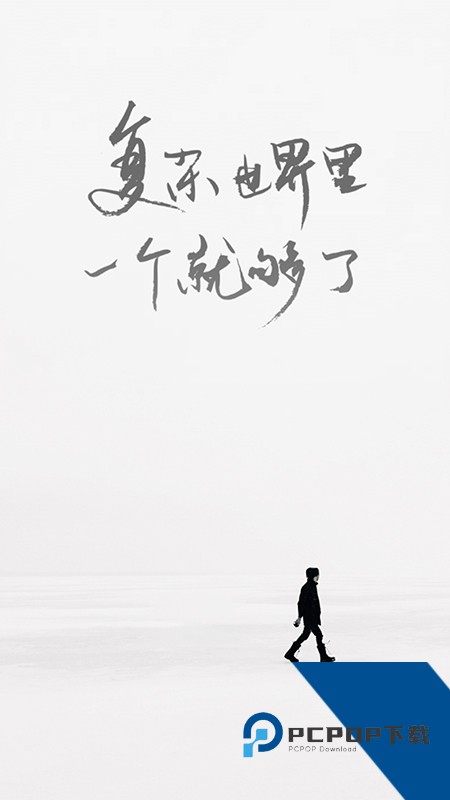 复杂世界里
一个就够了
PCPOP下载
PCPOP Download